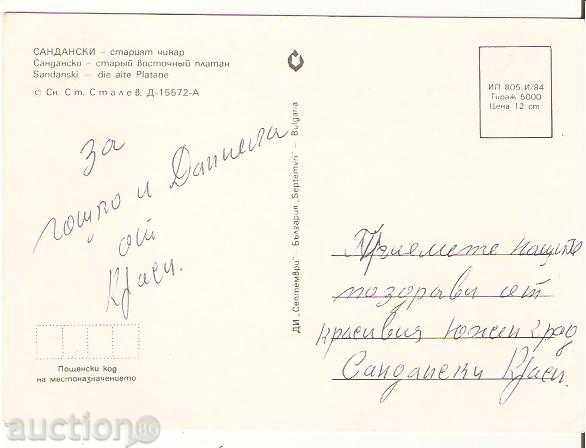 САНДАНСКИ – старият чинар
Сандански – старый восточный платан
Sandanski – die alte Platane
© Сн. Ст. Сталев, Д-15672-А
ИП 805 И/84
Тираж 5000
Цена 12 ст
ДИ „Септември" България „Septemvri" – Bulgaria
За
Гошко и Даниела
от
Краси.
Приемете нашите
поздрави от
красивия южен град
Сандански Краси.
Пощенски код
на местоназначението
auction